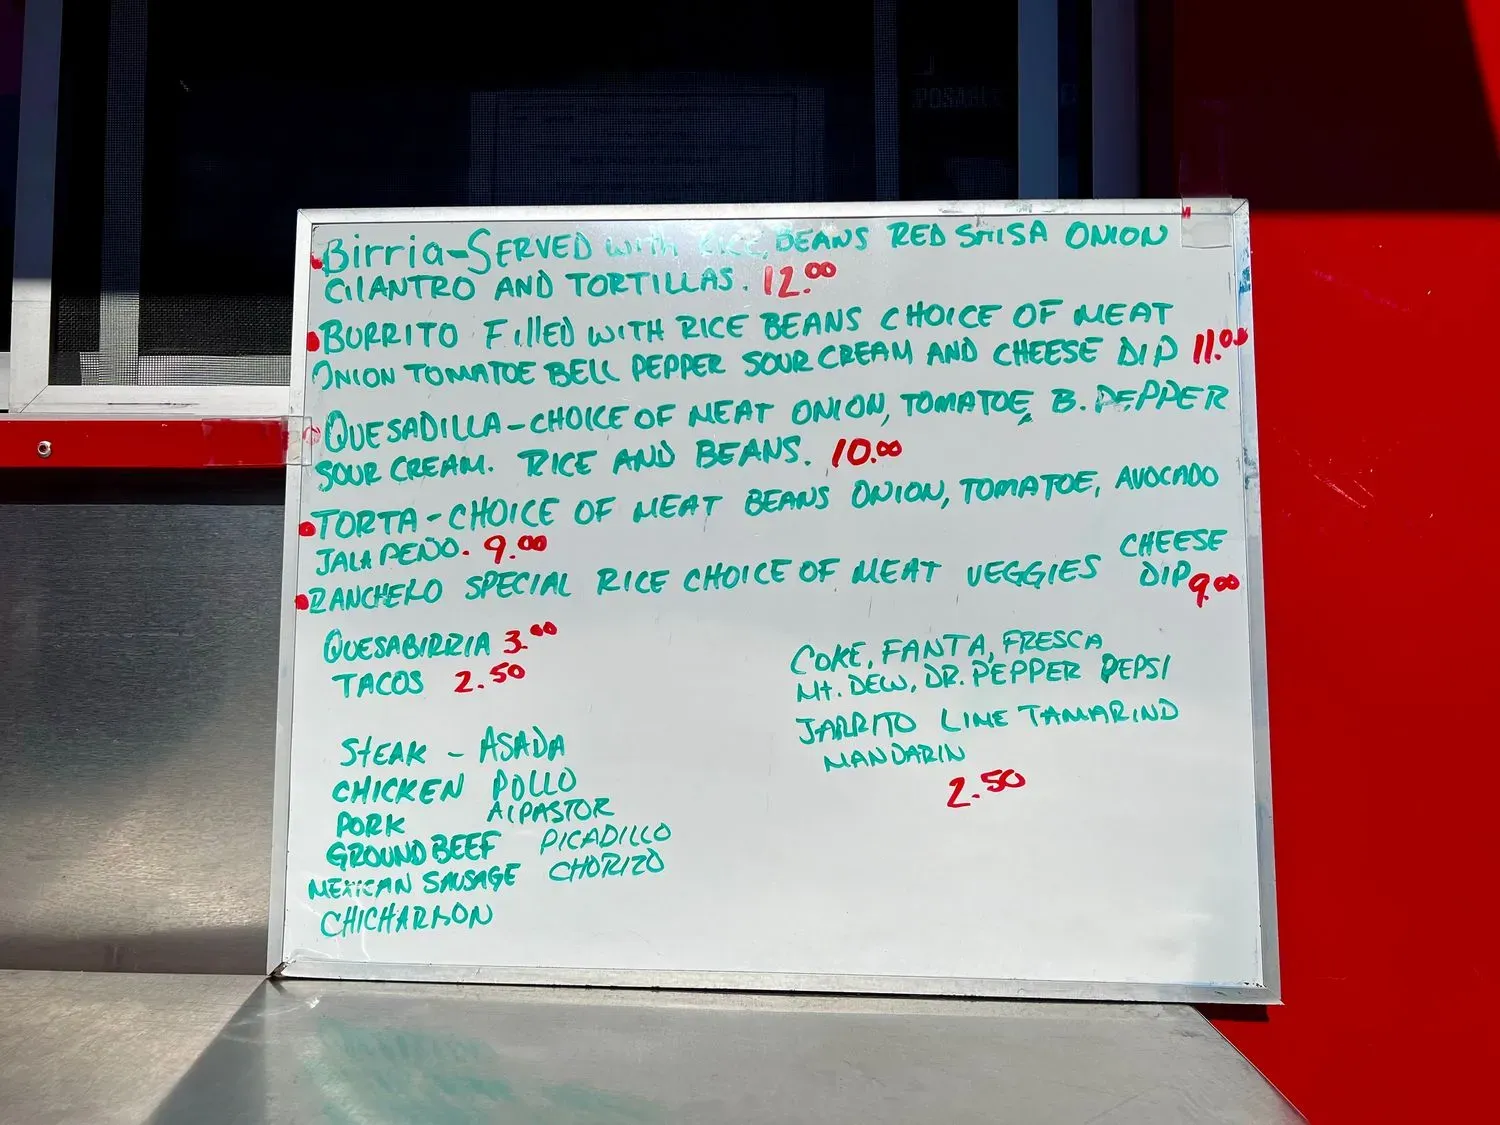 Birria-SERVED WITH RICE, BEANS RED SALSA ONION
CILANTRO AND TORTILLAS. 12.00
BURRITO FIlled WITH RICE BEANS CHOICE OF MEAT
ONION TOMATOE BELL PEPPER SOUR CREAM AND CHEESE DIP 11.00
QUESADILLA-CHOICE OF MEAT ONION, TOMATOE, B. PEPPER
SOUR CREAM. RICE AND BEANS. 10.00
TORTA-CHOICE OF MEAT BEANS ONION, TOMATOE, AVOCADO
JALAPEÑO. 9.00
RANCHERO SPECIAL RICE CHOICE OF MEAT VEGGIES CHEESE
DIP 9.00
QUESABIRRIA 3.00
TACOS 2.50
STEAK - ASADA
CHICKEN POLLO
PORK AlPASTOR
GROUND BEEF PICADILLO
MEXICAN SAUSAGE CHORIZO
CHICHARRON
COKE, FANTA, FRESCA
Mt. DEW, DR. PEPPER PEPSI
JARRITO LIME TAMARIND
MANDARIN
2.50